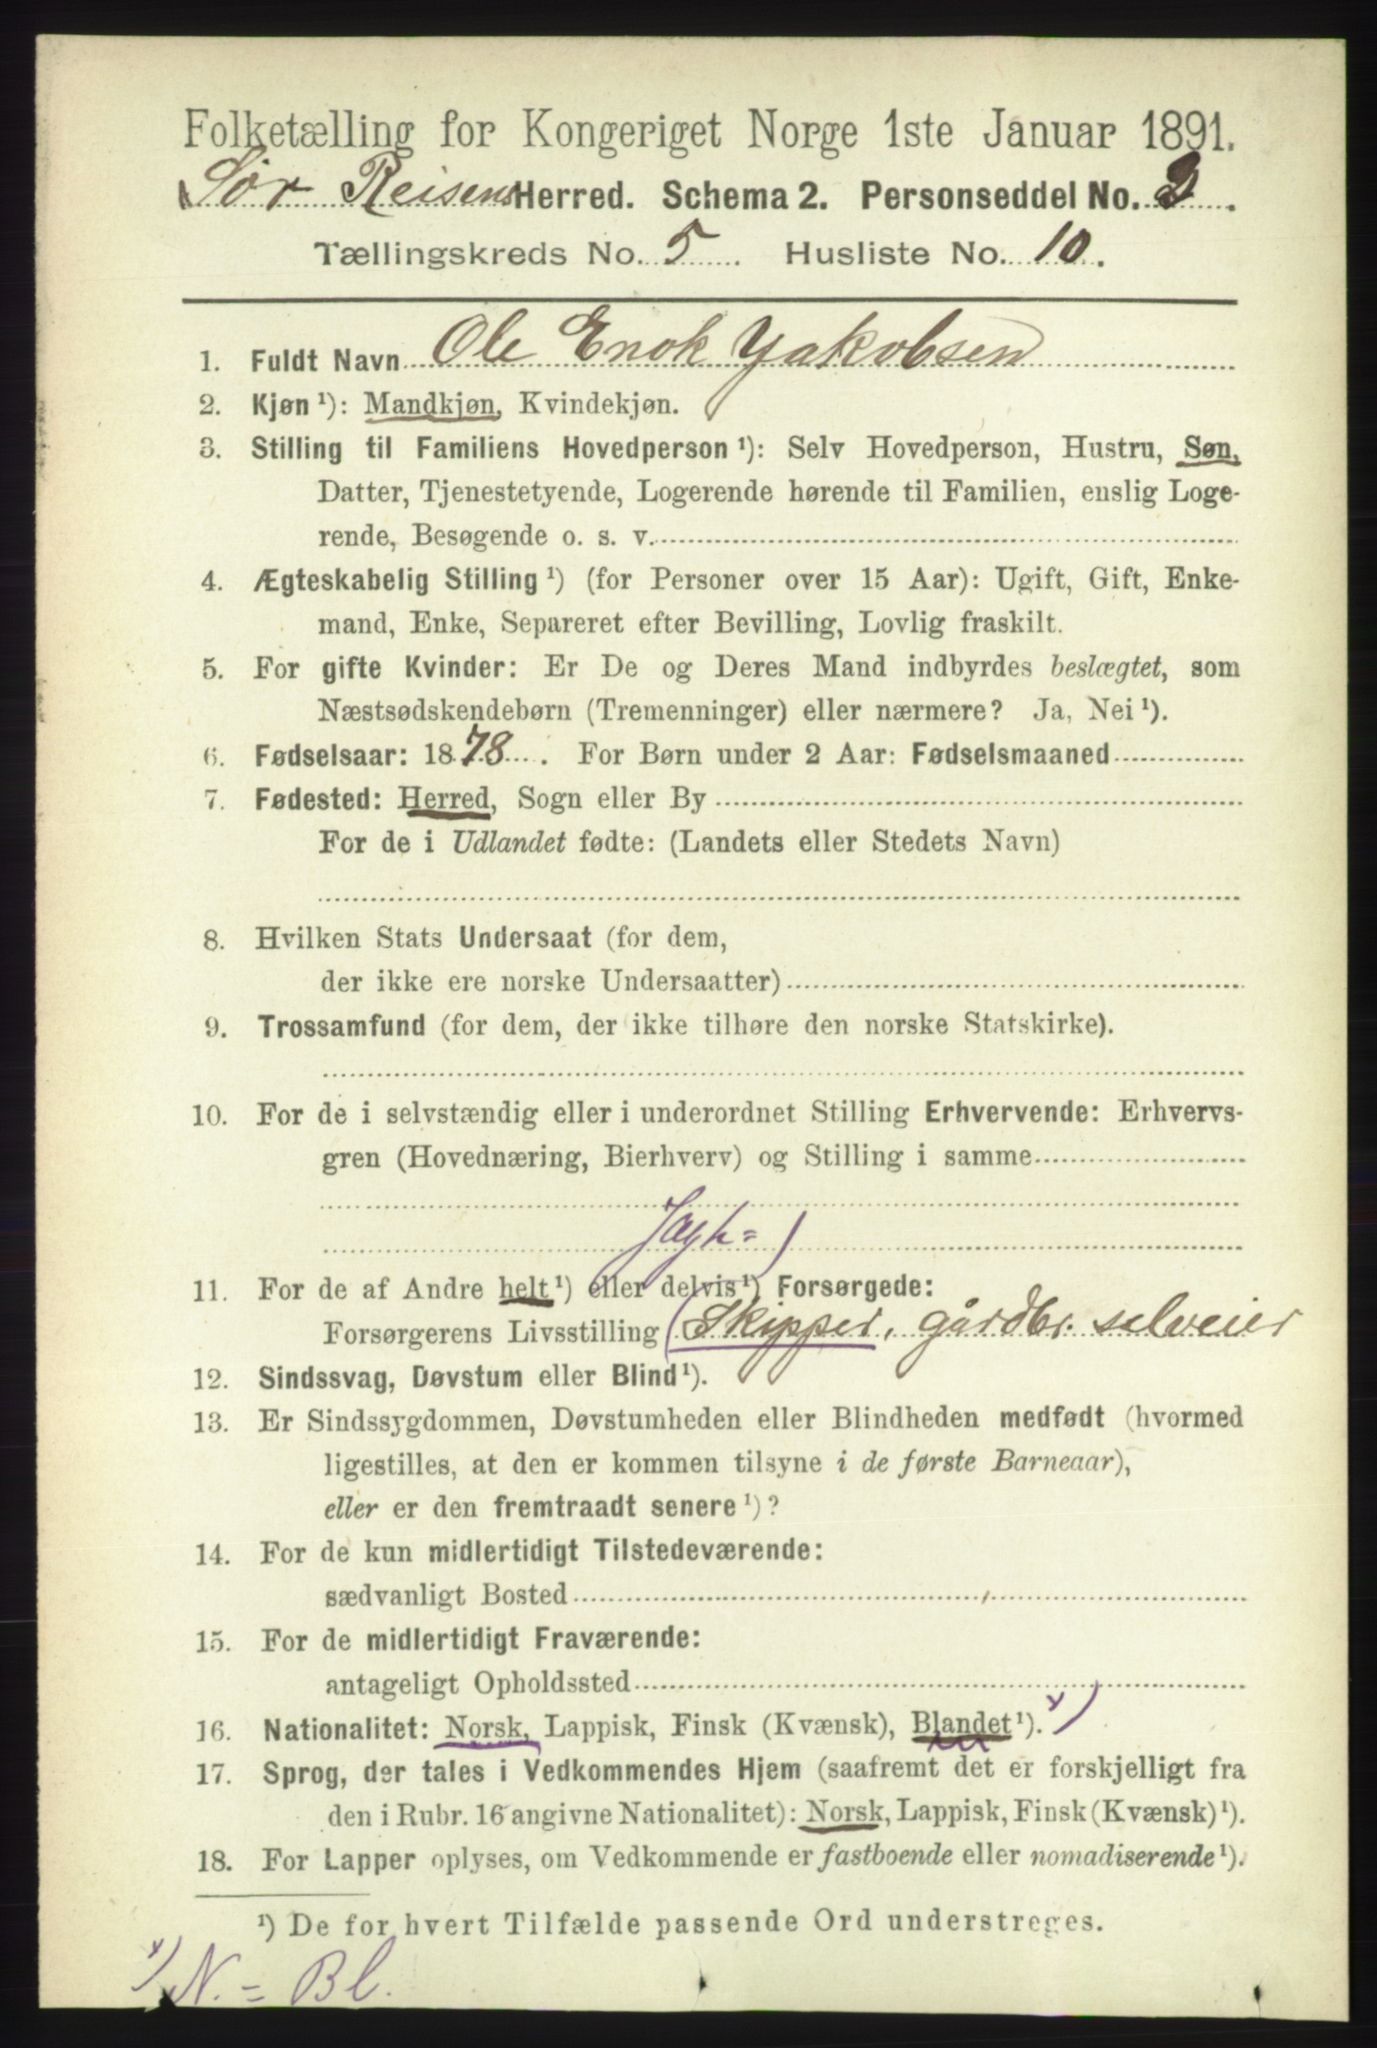 Folketælling for Kongeriget Norge 1ste Januar 1891.
Sør Reisens Herred. Schema 2. Personseddel No. 3.
Tællingskreds No. 5. Husliste No. 10.
1. Fuldt Navn Ole Enok Yakobsen
2. Kjøn ¹): Mandkjøn, Kvindekjøn.
3. Stilling til Familiens Hovedperson ¹): Selv Hovedperson, Hustru, Søn,
Datter, Tjenestetyende, Logerende hørende til Familien, enslig Loge-
rende, Besøgende o. s. v.
4. Ægteskabelig Stilling ¹) (for Personer over 15 Aar): Ugift, Gift, Enke-
mand, Enke, Separeret efter Bevilling, Lovlig fraskilt.
5. For gifte Kvinder: Er De og Deres Mand indbyrdes beslægtet, som
Næstsødskendebørn (Tremenninger) eller nærmere? Ja, Nei ¹).
6. Fødselsaar: 1878. For Børn under 2 Aar: Fødselsmaaned
7. Fødested: Herred, Sogn eller By
For de i Udlandet fødte: (Landets eller Stedets Navn)
8. Hvilken Stats Undersaat (for dem,
der ikke ere norske Undersaatter)
9. Trossamfund (for dem, der ikke tilhøre den norske Statskirke).
10. For de i selvstændig eller i underordnet Stilling Erhvervende: Erhvervs-
gren (Hovednæring, Bierhverv) og Stilling i samme
Jagt=)
11. For de af Andre helt ¹) eller delvis ¹) Forsørgede:
Forsørgerens Livsstilling (Skipper, gårdbr. selveier
12. Sindssvag, Døvstum eller Blind ¹).
13. Er Sindssygdommen, Døvstumheden eller Blindheden medfødt (hvormed
ligestilles, at den er kommen tilsyne i de første Barneaar),
eller er den fremtraadt senere ¹)?
14. For de kun midlertidigt Tilstedeværende:
sædvanligt Bosted
15. For de midlertidigt Fraværende:
antageligt Opholdssted
16. Nationalitet: Norsk, Lappisk, Finsk (Kvænsk), Blandet ¹). ˣ)
17. Sprog, der tales i Vedkommendes Hjem (saafremt det er forskjelligt fra
den i Rubr. 16 angivne Nationalitet): Norsk, Lappisk, Finsk (Kvænsk) ¹).
18. For Lapper oplyses, om Vedkommende er fastboende eller nomadiserende ¹).
¹) De for hvert Tilfælde passende Ord understreges.
ˣ) N. = Bl.